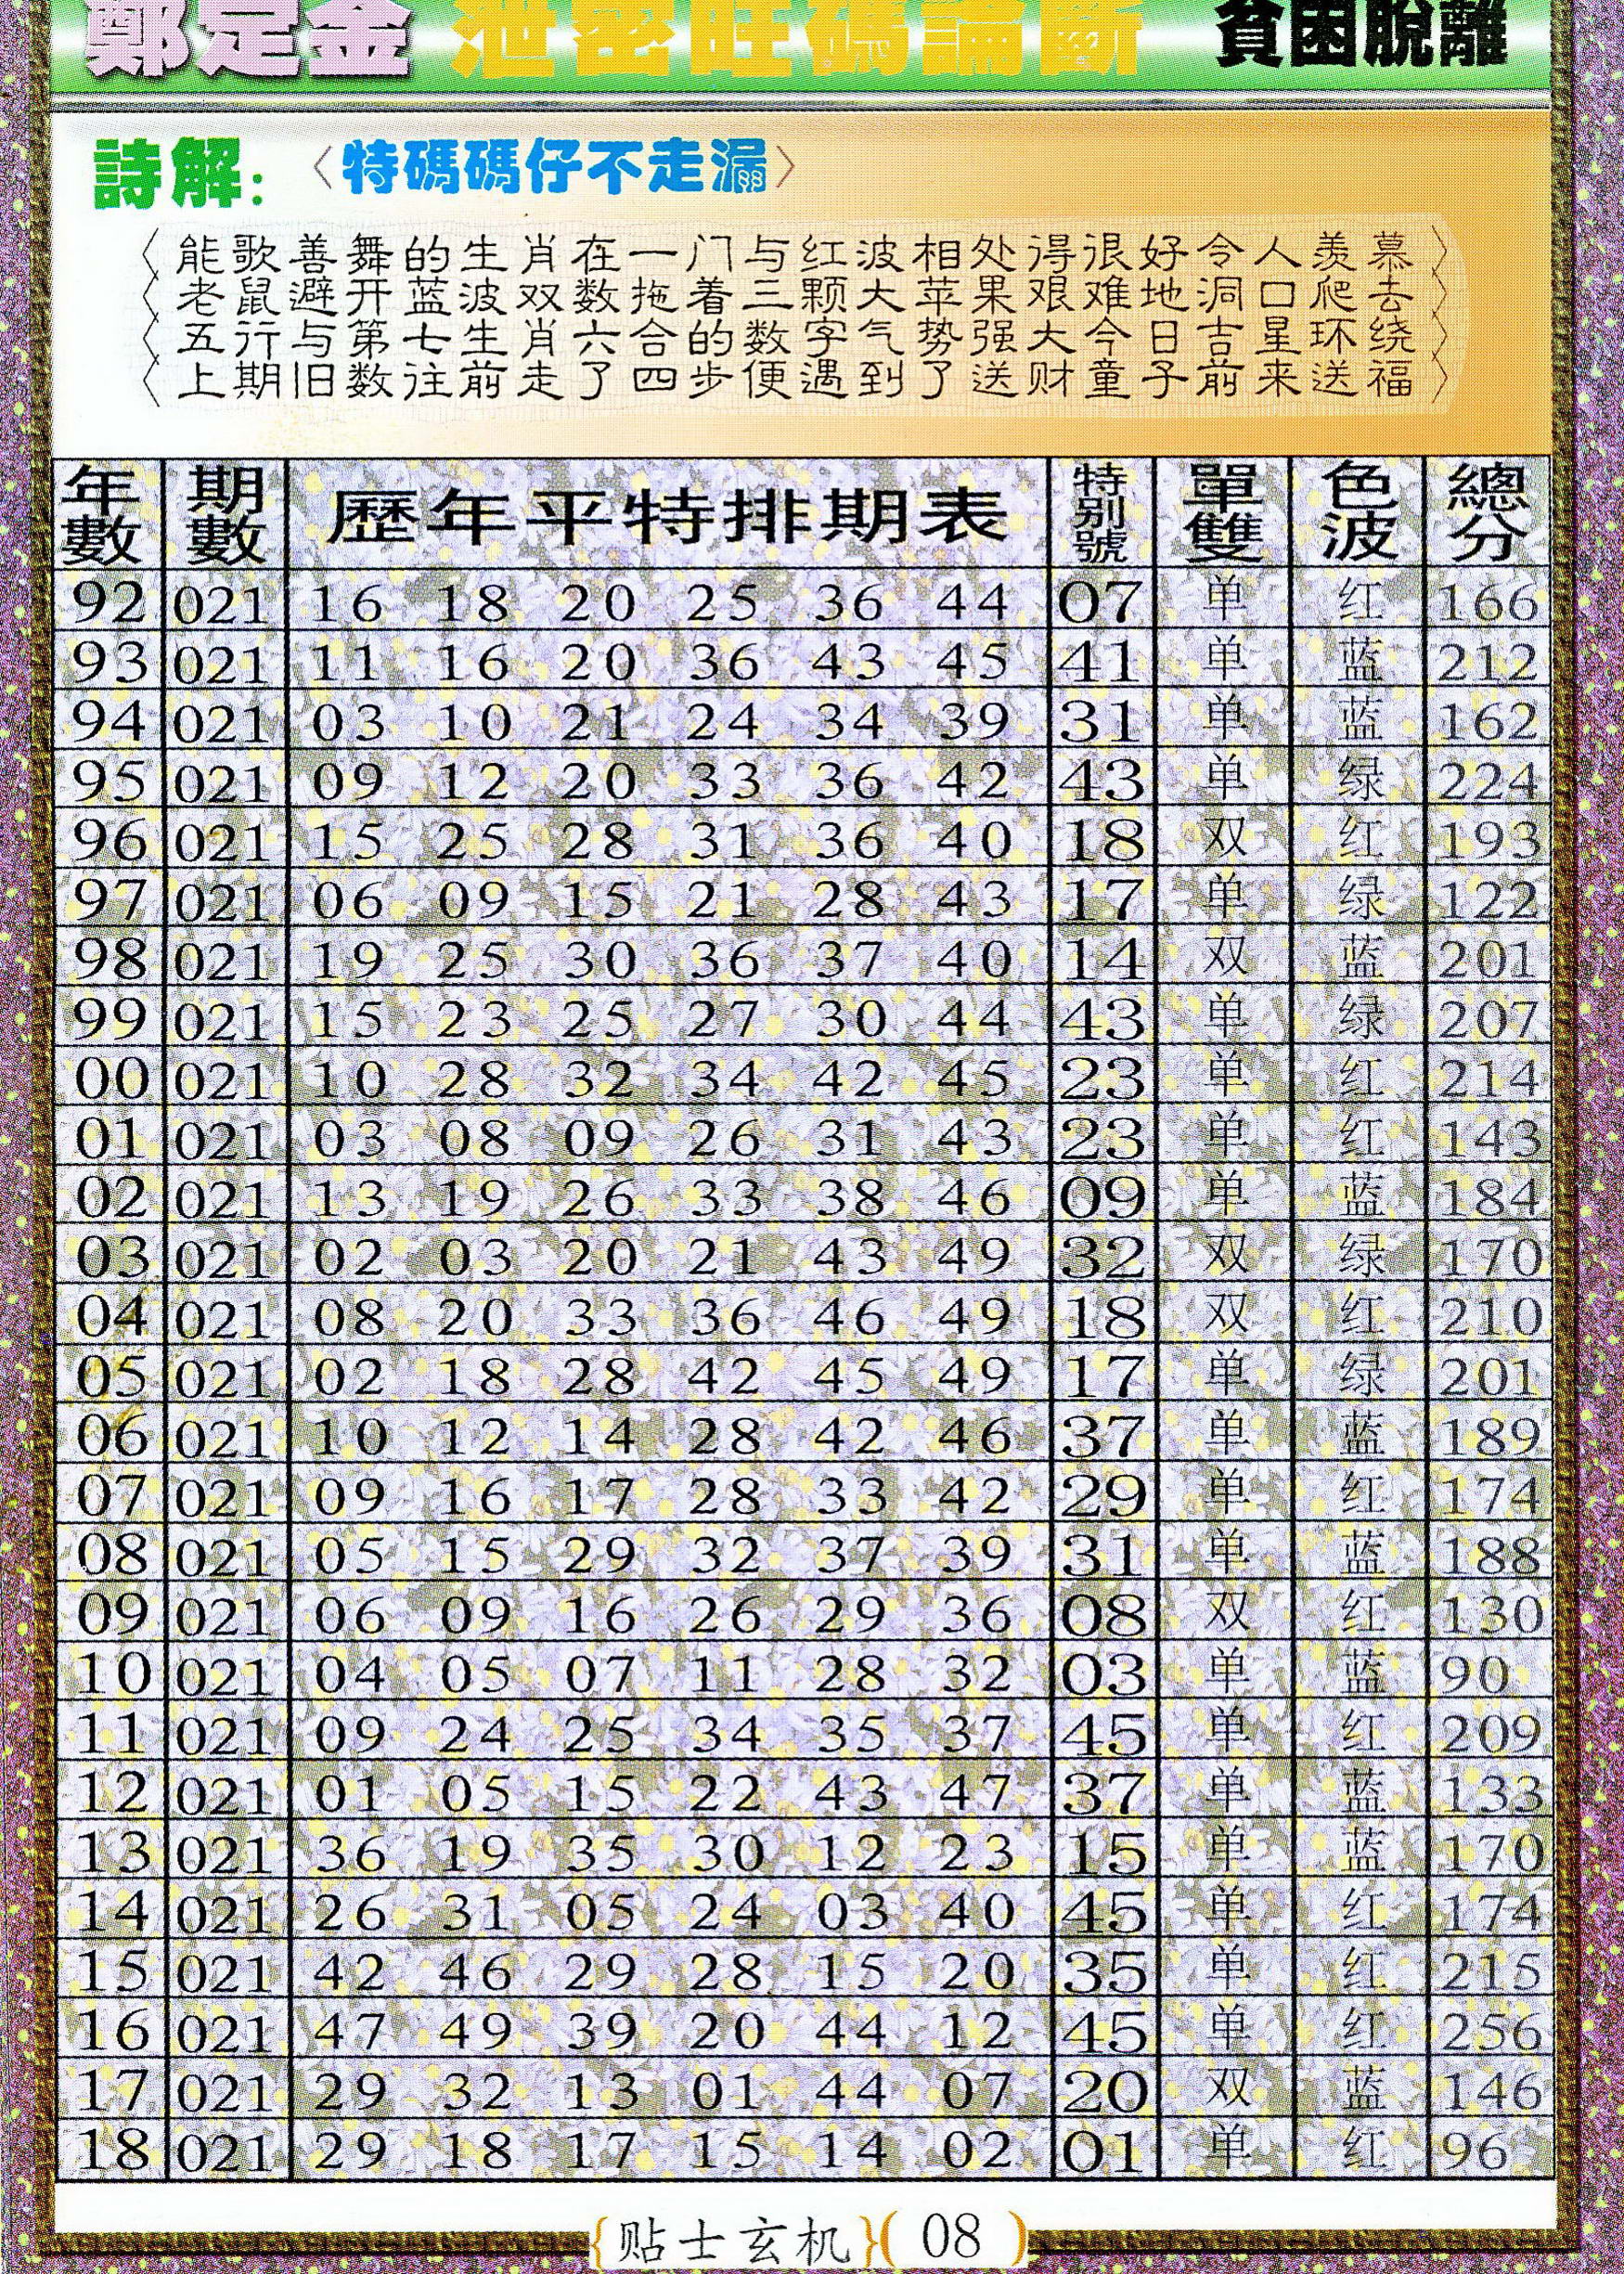 鄭定金 泄密旺碼論斷 貧困脫離
詩解：〈特碼碼仔不走漏〉
〈能歌善舞的生肖在一门与红波相处得很好令人羡慕〉
〈老鼠避开蓝波双数拖着三颗大苹果艰难地洞口爬去〉
〈五行与第七生肖六合的数字气势强大今日吉星环绕〉
〈上期旧数往前走了四步便遇到了送财童子前来送福〉
年數 期數 歷年平特排期表 特别號 單雙 色波 總分
92 021 16 18 20 25 36 44 07 单 红 166
93 021 11 16 20 36 43 45 41 单 蓝 212
94 021 03 10 21 24 34 39 31 单 蓝 162
95 021 09 12 20 33 36 42 43 单 绿 224
96 021 15 25 28 31 36 40 18 双 红 193
97 021 06 09 15 21 28 43 17 单 绿 122
98 021 19 25 30 36 37 40 14 双 蓝 201
99 021 15 23 25 27 30 44 43 单 绿 207
00 021 10 28 32 34 42 45 23 单 红 214
01 021 03 08 09 26 31 43 23 单 红 143
02 021 13 19 26 33 38 46 09 单 蓝 184
03 021 02 03 20 21 43 49 32 双 绿 170
04 021 08 20 33 36 46 49 18 双 红 210
05 021 02 18 28 42 45 49 17 单 绿 201
06 021 10 12 14 28 42 46 37 单 蓝 189
07 021 09 16 17 28 33 42 29 单 红 174
08 021 05 15 29 32 37 39 31 单 蓝 188
09 021 06 09 16 26 29 36 08 双 红 130
10 021 04 05 07 11 28 32 03 单 蓝 90
11 021 09 24 25 34 35 37 45 单 红 209
12 021 01 05 15 22 43 47 37 单 蓝 133
13 021 36 19 35 30 12 23 15 单 蓝 170
14 021 26 31 05 24 03 40 45 单 红 174
15 021 42 46 29 28 15 20 35 单 红 215
16 021 47 49 39 20 44 12 45 单 红 256
17 021 29 32 13 01 44 07 20 双 蓝 146
18 021 29 18 17 15 14 02 01 单 红 96
{贴士玄机}(08)